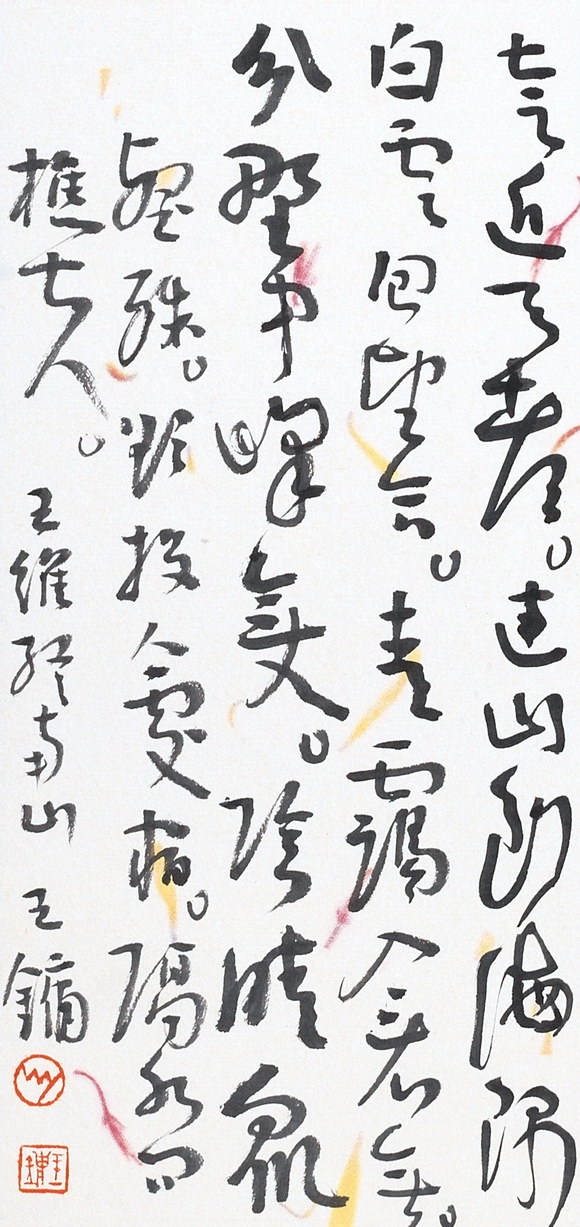 太乙近天都。連山到海隅
白雲回望合。青靄入看無。
分野中峰變。陰晴眾
壑殊。欲投人處宿。隔水問
樵夫。王維終南山 王鏞